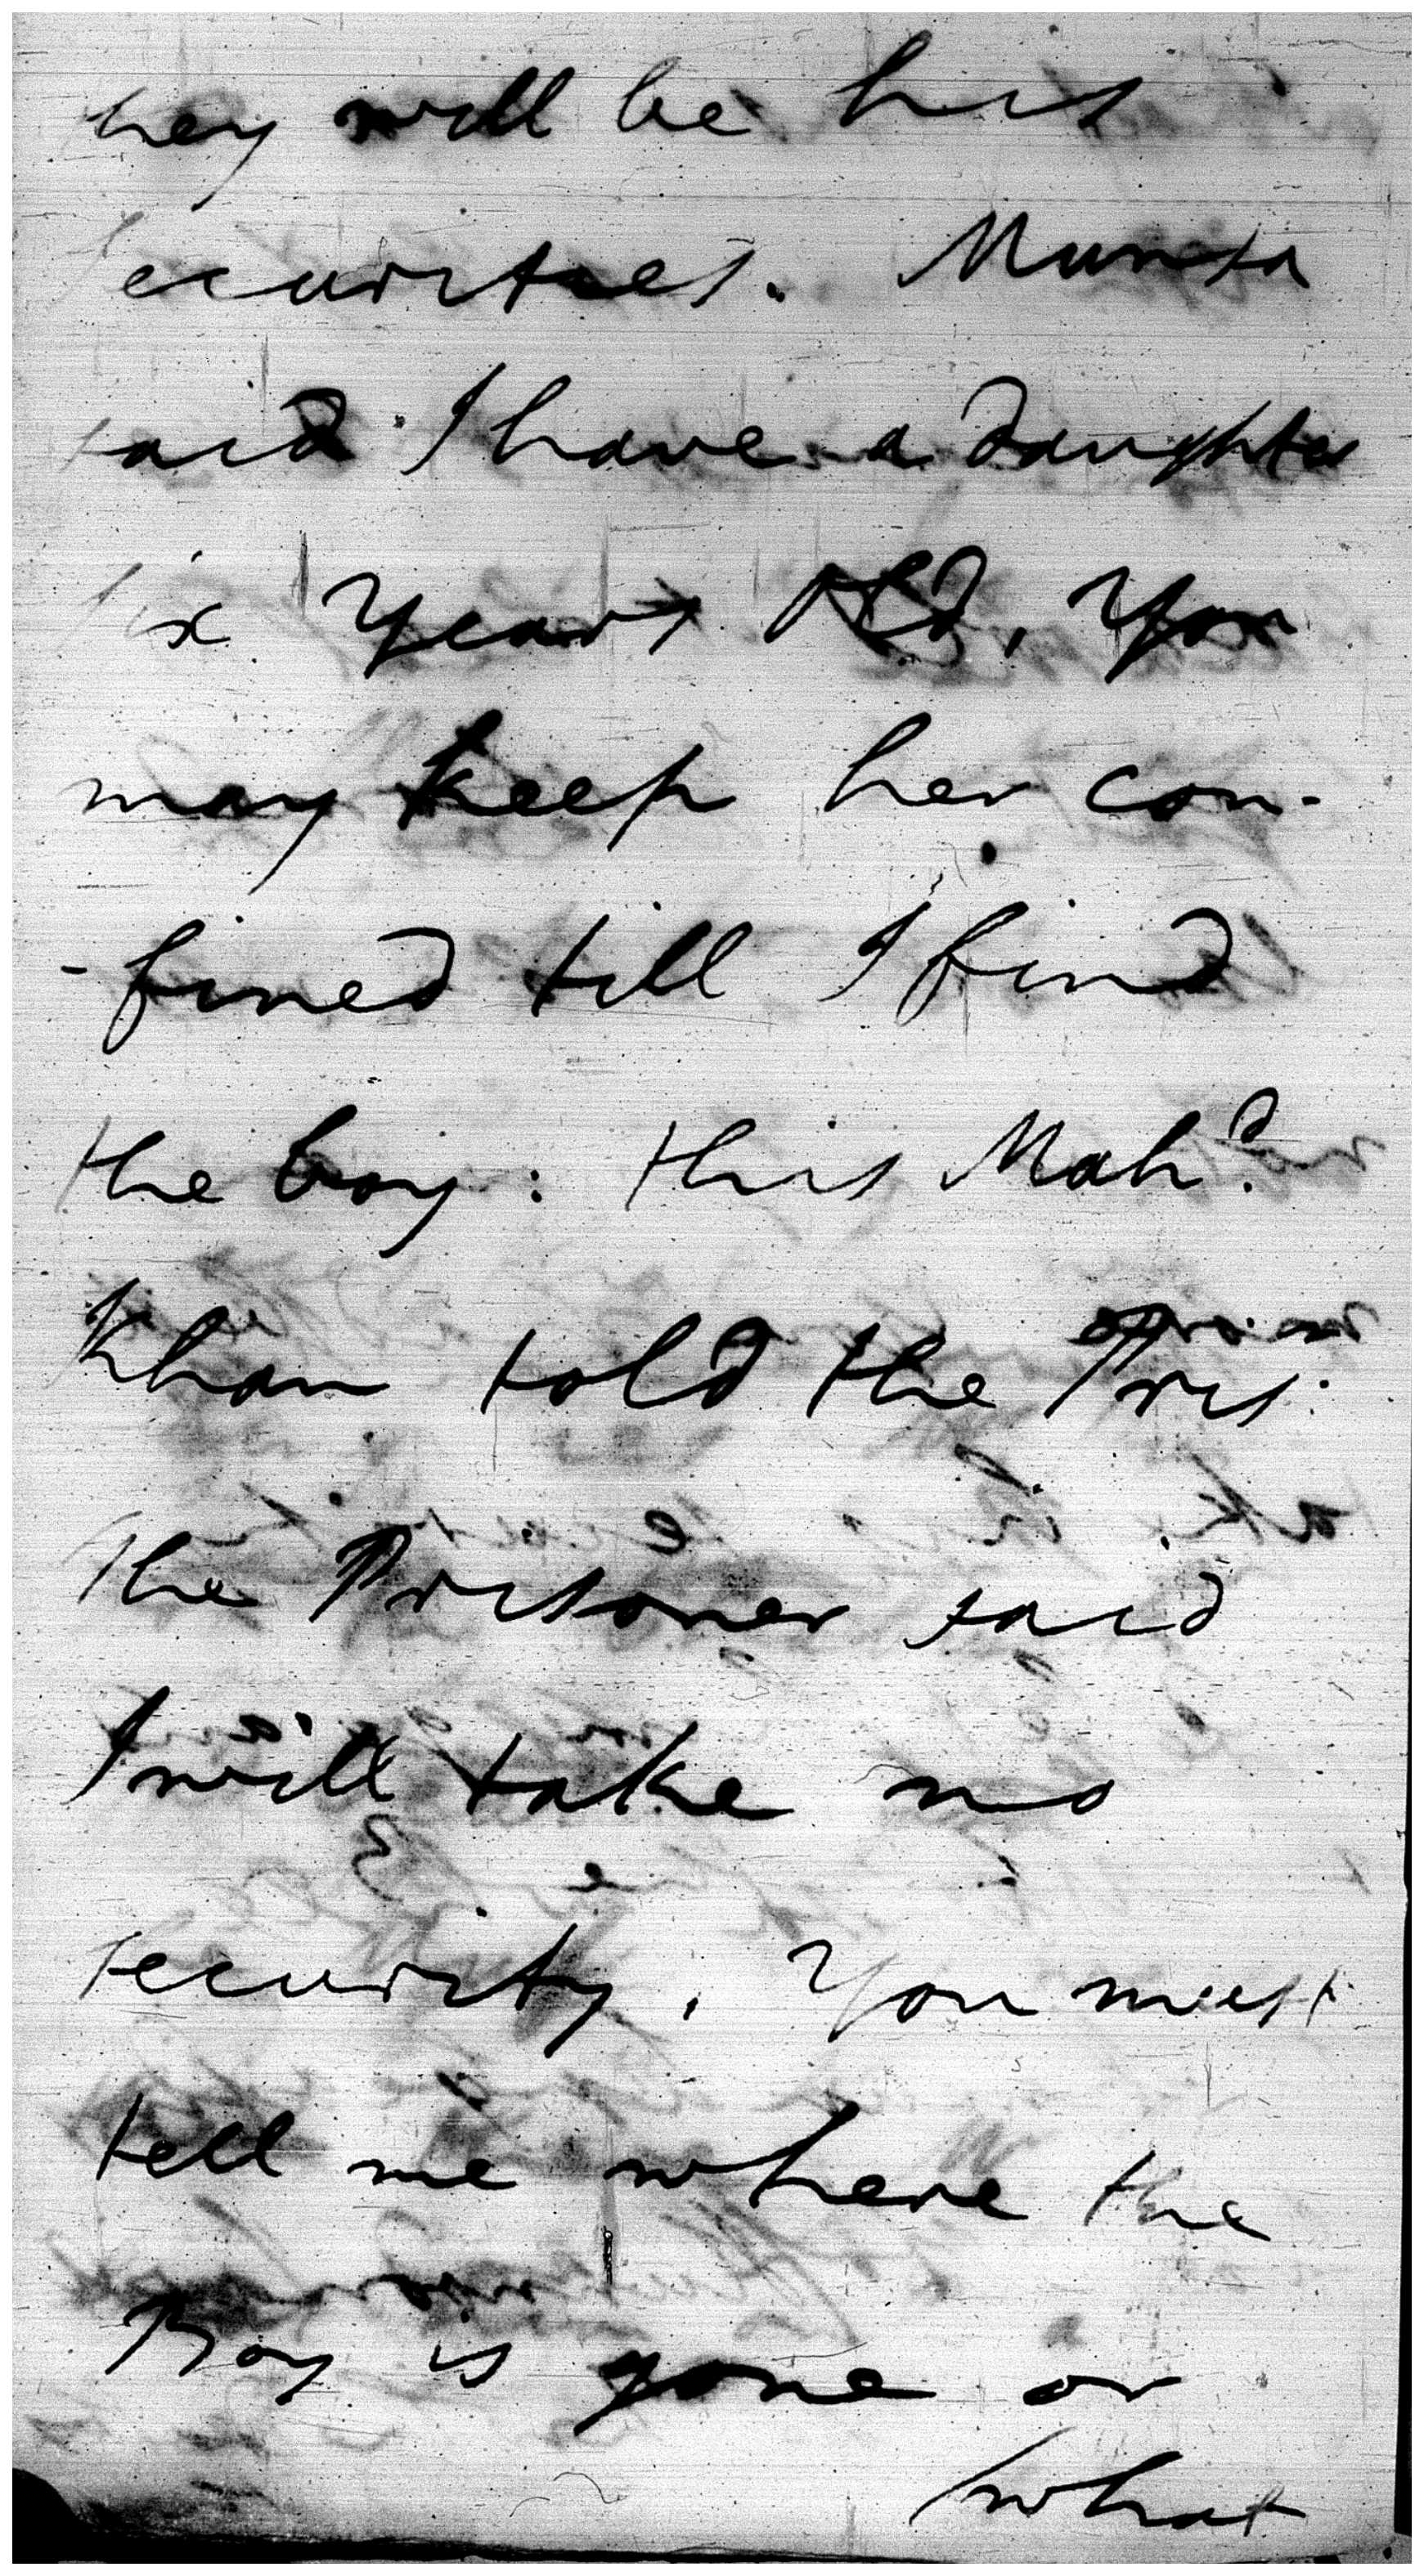 they will be his
securities. Munsa
said I have a daughter
six Years Old, You
may keep her con-
-fined till I find
the boy: this Mahd.
Khan told the Pris:
The Prisoner said
I will take no
security, You must
tell me where the
Boy is gone or
what